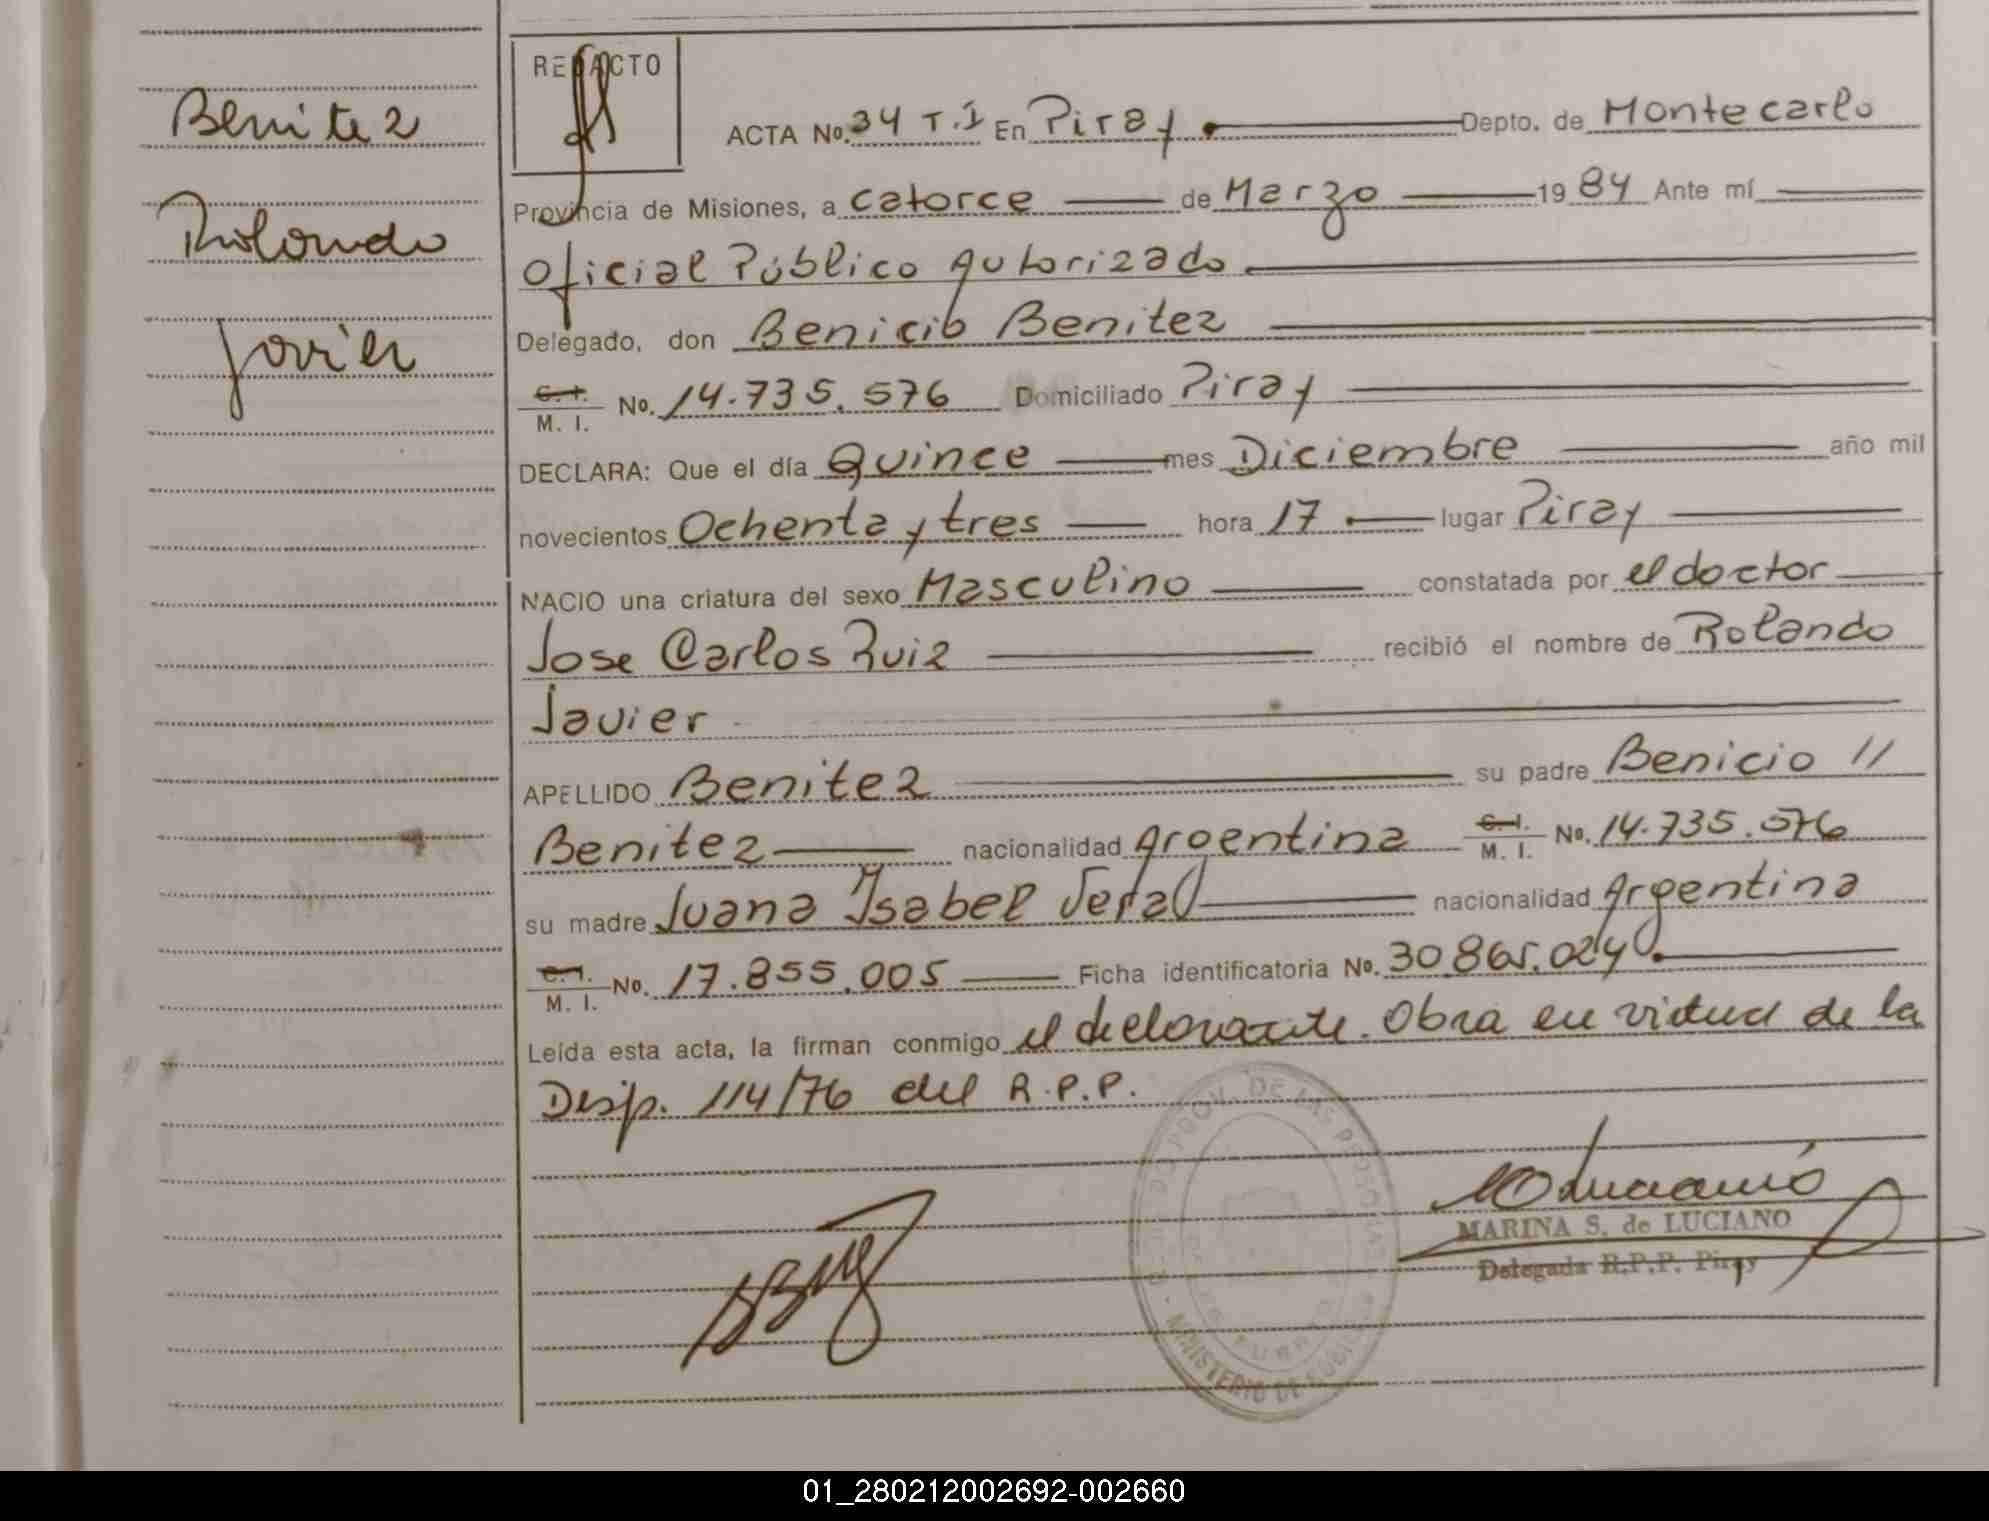 Benitez
Rolando
Javier
REDACTO
ACTA No. 34 T.I En Piray Depto. de Montecarlo
Provincia de Misiones, a catorce de Marzo 1984 Ante mí
Oficial Público Autorizado
Delegado, don Benicio Benitez
C. I. M. I. No. 14.735.576 Domiciliado Piray
DECLARA: Que el día Quince mes Diciembre año mil
novecientos Ochenta y tres hora 17 lugar Piray
NACIO una criatura del sexo Masculino constatada por el doctor
Jose Carlos Ruiz recibió el nombre de Rolando
Javier
APELLIDO Benitez su padre Benicio //
Benitez nacionalidad Argentina C. I. M. I. No. 14.735.576
su madre Juana Ysabel nacionalidad Argentina
C. I. M. I. No. 17.855.005 Ficha identificatoria No. 30.865.024
Leída esta acta, la firman conmigo el declarante. Obra en virtud de la
Disp. 114/76 del R.P.P.
DE LAS PERSONAS
MINISTERIO DE GOBIERNO
MARINA S. de LUCIANO
Delegada R.P.P. Piray
01_280212002692-002660